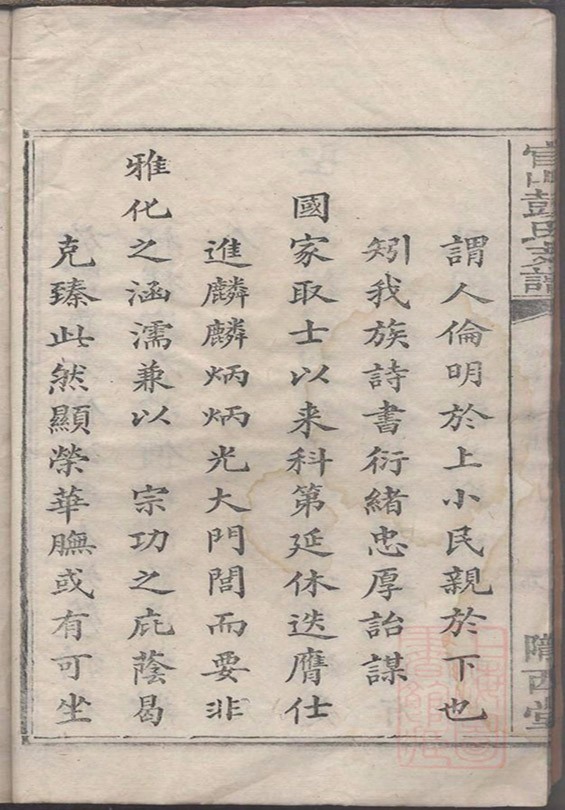 官山彭氏支譜
隴西堂
謂人倫明於上小民親於下也
矧我族詩書衍緒忠厚詒謀
國家取士以来科第延休迭膺仕
進麟麟炳炳光大門閭而要非
雅化之涵濡兼以 宗功之庇蔭曷
克臻此然顯榮華膴或有可坐